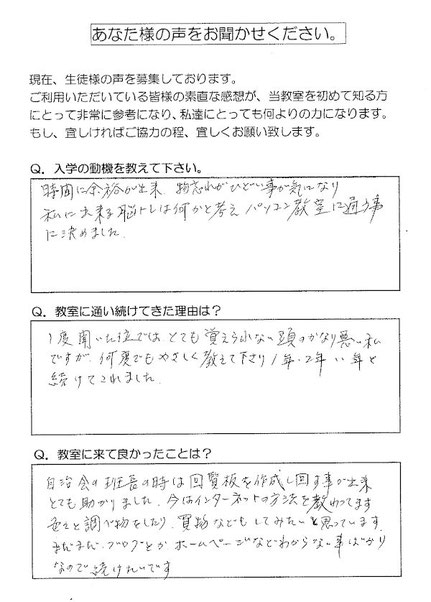 あなた様の声をお聞かせください。
現在、生徒様の声を募集しております。
ご利用いただいている皆様の素直な感想が、当教室を初めて知る方
にとって非常に参考になり、私達にとっても何よりの力になります。
もし、宜しければご協力の程、宜しくお願い致します。
Q. 入学の動機を教えて下さい。
時間に余裕が出来 物忘れがひどい事が気になり
私に出来る脳トレは何かと考え パソコン教室に通う事
に決めました。
Q. 教室に通い続けてきた理由は?
1度聞いた位では、とても覚えられない頭のかなり悪い私
ですが、何度でもやさしく教えて下さり1年・2年 い 年と
続けてこれました。
Q. 教室に来て良かったことは?
自治会の班長の時は回覧板を作成し回す事が出来
とても助かりました。今はインターネットの方法を教わってます
色々と調べ物をしたり、買物などもしてみたいと思っています。
まだまだ ブログとか ホームページなどわからない事ばかり
なので続けたいです